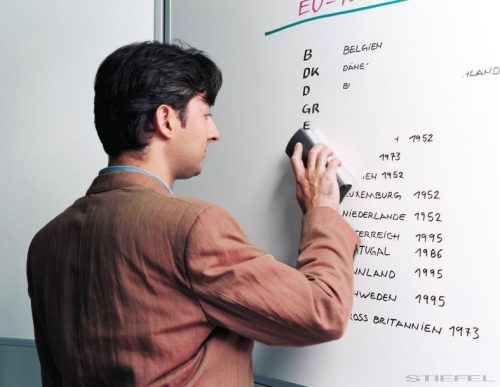 B BELGIEN
DK DÄNE
D B
GR
E
LAND
1952
1973
EN 1952
UXEMBURG 1952
NIEDERLANDE 1952
TERREICH 1995
TUGAL 1986
NNLAND 1995
HWEDEN 1995
ROSS BRITANNIEN 1973
STIEFEL